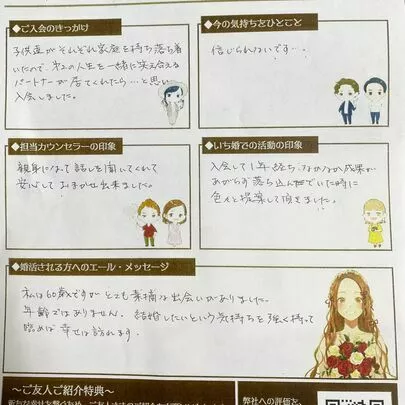 ◆ご入会のきっかけ
子供達がそれぞれ家庭を持ち落ち着
いたので、第2の人生を一緒に笑え合える
パートナーが居てくれたら…と思い
入会しました。
◆今の気持ちをひとこと
信じられないです…。
◆担当カウンセラーの印象
親身になって話しを聞いてくれて
安心しておまかせ出来ました。
◆いち婚での活動の印象
入会して1年経ち、なかなか成果が
あがらず落ち込んでいた時に
色々と提案して頂きました。
◆婚活される方へのエール・メッセージ
私は60歳ですが とても素敵な出会いがありました。
年齢ではありません。結婚したいという気持ちを強く持って
臨めば幸せは訪れます。
〜ご友人ご紹介特典〜
弊社への評価を、